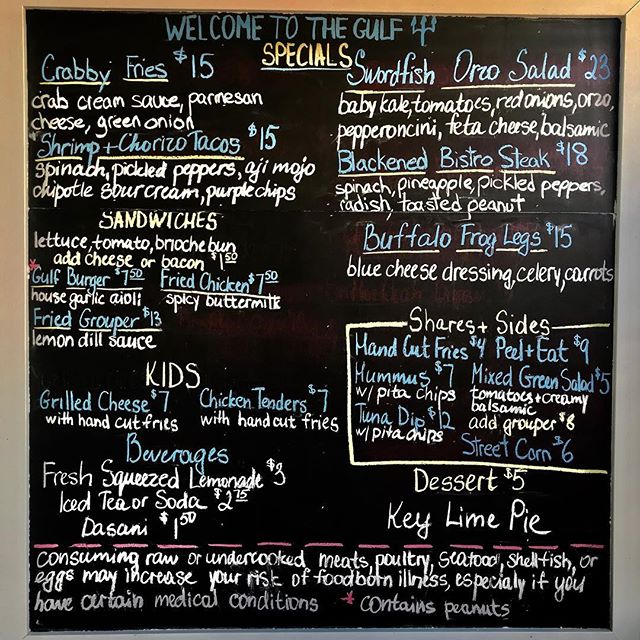 WELCOME TO THE GULF
SPECIALS
Crabby Fries $15
crab cream sauce, parmesan
cheese, green onion
*Shrimp + Chorizo Tacos $15
spinach, pickled peppers, aji mojo
chipotle sour cream, purple chips
Swordfish Orzo Salad $23
baby kale, tomatoes, red onions, orzo,
pepperoncini, feta cheese, balsamic
Blackened Bistro Steak $18
spinach, pineapple, pickled peppers,
radish, toasted peanut
SANDWICHES
lettuce, tomato, brioche bun
add cheese or bacon $1.50
*Gulf Burger $7.50 Fried Chicken $7.50
house garlic aioli spicy buttermilk
Fried Grouper $13
lemon dill sauce
Buffalo Frog Legs $15
blue cheese dressing, celery, carrots
KIDS
Grilled Cheese $7 Chicken Tenders $7
with hand cut fries with hand cut fries
Beverages
Fresh Squeezed Lemonade $3
Iced Tea or Soda $2.75
Dasani $1.50
Shares + Sides
Hand Cut Fries $4 Peel + Eat $9
Hummus $7 Mixed Green Salad $5
w/ pita chips tomatoes + creamy
balsamic
Tuna Dip $12 add grouper $8
w/ pita chips
Street Corn $6
Dessert $5
Key Lime Pie
consuming raw or undercooked meats, poultry, seafood, shellfish, or
eggs may increase your risk of foodborn illness, especialy if you
have certain medical conditions * contains peanuts